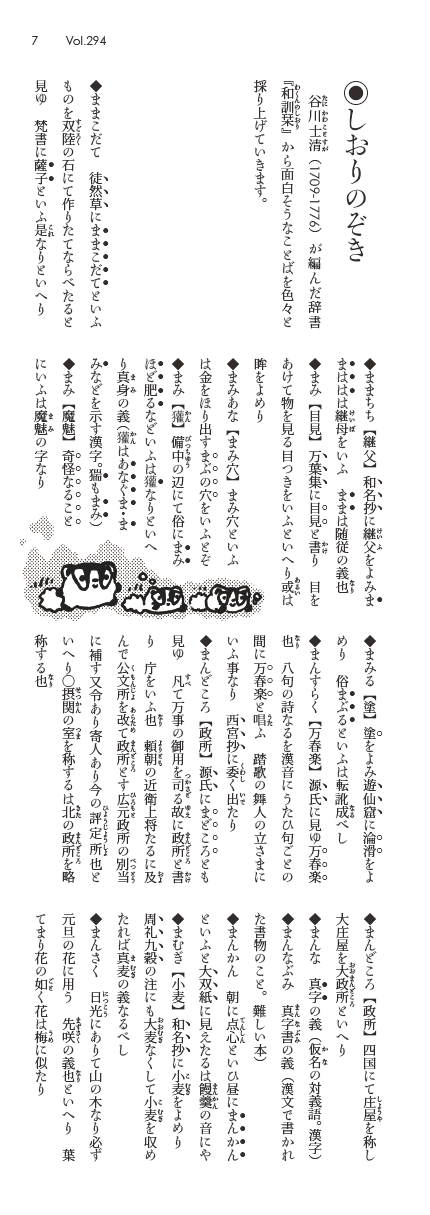 7　Vol.294
◉しおりのぞき
谷川士清（1709-1776）が編んだ辞書
『和訓栞』から面白そうなことばを色々と
採り上げていきます。
◆ままこだて　徒然草にままこだてといふ
ものを双陸の石にて作りたてならべたると
見ゆ　梵書に薩子といふ是なりといへり
◆ままちち【継父】和名抄に継父をよみま
まははは継母をいふ　ままは随従の義也
◆まみ【目見】万葉集に目見と書り　目を
あけて物を見る目つきをいふといへり或は
眸をよめり
◆まみあな【まみ穴】まみ穴といふ
は金をほり出すまぶの穴をいふとぞ
◆まみ【獾】備中の辺にて俗にまみ
ほど肥るなどいふは獾なりといへ
り真身の義（獾はあなぐま・ま
みなどを示す漢字。猯もまみ）
◆まみ【魔魅】奇怪なること
にいふは魔魅の字なり
◆まみる【塗】塗をよみ遊仙窟に淪滑をよ
めり　俗まぶるといふは転訛成べし
◆まんすらく【万春楽】源氏に見ゆ万春楽
也　八句の詩なるを漢音にうたひ句ごとの
間に万春楽と唱ふ　踏歌の舞人の立さまに
いふ事なり　西宮抄に委く出たり
◆まんどころ【政所】源氏にまどころとも
見ゆ　凡て万事の御用を司る故に政所と書
り　庁をいふ也　頼朝の近衛上将たるに及
んで公文所を改て政所とす広元政所の別当
に補す又令あり寄人あり今の評定所也と
いへり〇摂関の室を称するは北の政所を略
称する也
◆まんどころ【政所】四国にて庄屋を称し
大庄屋を大政所といへり
◆まんな　真字の義（仮名の対義語。漢字）
◆まんなぶみ　真字書の義（漢文で書かれ
た書物のこと。難しい本）
◆まんかん　朝に点心といひ昼にまんかん
といふと大双紙に見えたるは饅羹の音にや
◆まむぎ【小麦】和名抄に小麦をよめり
周礼九穀の注にも大麦なくして小麦を収め
たれば真麦の義なるべし
◆まんさく　日光にありて山の木なり必ず
元旦の花に用う　先咲の義也といへり　葉
てまり花の如く花は梅に似たり